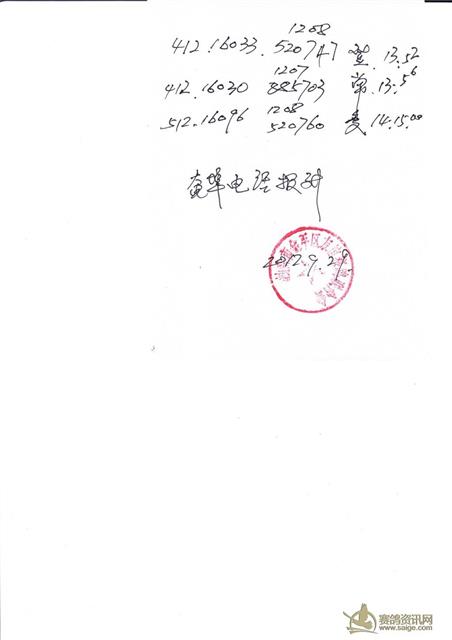 1208
412.16033. 520747 13:52
1207
412.16030 885703 单.13:56
1208
512.16096 520760 14.15.00
电话报到
2012.9.29.
赛鸽资讯网
www.saige.com